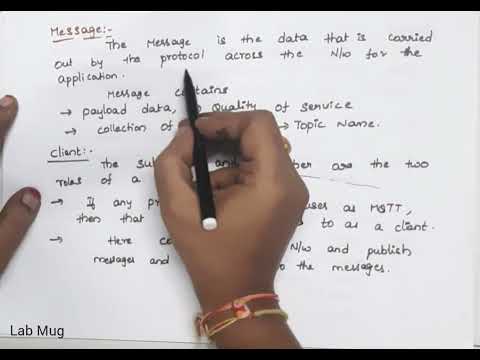 Message:-
The Message is the data that is carried
out by the protocol across the N/w for the
application.
Message contains
→ payload data, Quality of service
→ collection of → Topic Name.
Client:-
The sub and ber are the two
roles of a
→ If any pr uses as MQTT,
then that s to as a client.
→ Here co N/w and publish
messages and o the messages.
Lab Mug